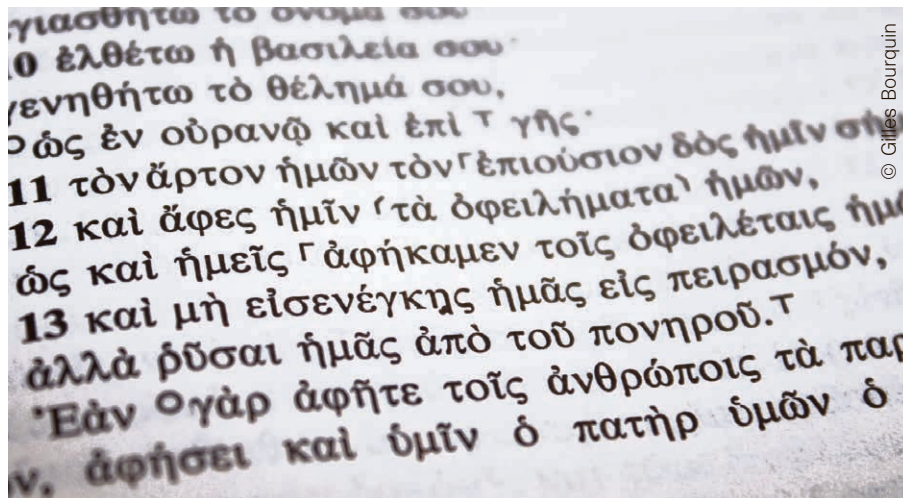 γιασθήτω τὸ ὄνομά σου
10 ἐλθέτω ἡ βασιλεία σου·
γενηθήτω τὸ θέλημά σου,
°ὡς ἐν οὐρανῷ καὶ ἐπὶ ⸆ γῆς·
11 τὸν ἄρτον ἡμῶν τὸν ⸀ἐπιούσιον δὸς ἡμῖν
12 καὶ ἄφες ἡμῖν ⸂τὰ ὀφειλήματα⸃ ἡμῶν,
ὡς καὶ ἡμεῖς ⸀ἀφήκαμεν τοῖς ὀφειλέταις
13 καὶ μὴ εἰσενέγκῃς ἡμᾶς εἰς πειρασμόν,
ἀλλὰ ῥῦσαι ἡμᾶς ἀπὸ τοῦ πονηροῦ.⸆
Ἐὰν °γὰρ ἀφῆτε τοῖς ἀνθρώποις τὰ
ν, ἀφήσει καὶ ὑμῖν ὁ πατὴρ ὑμῶν ὁ
© Gilles Bourquin